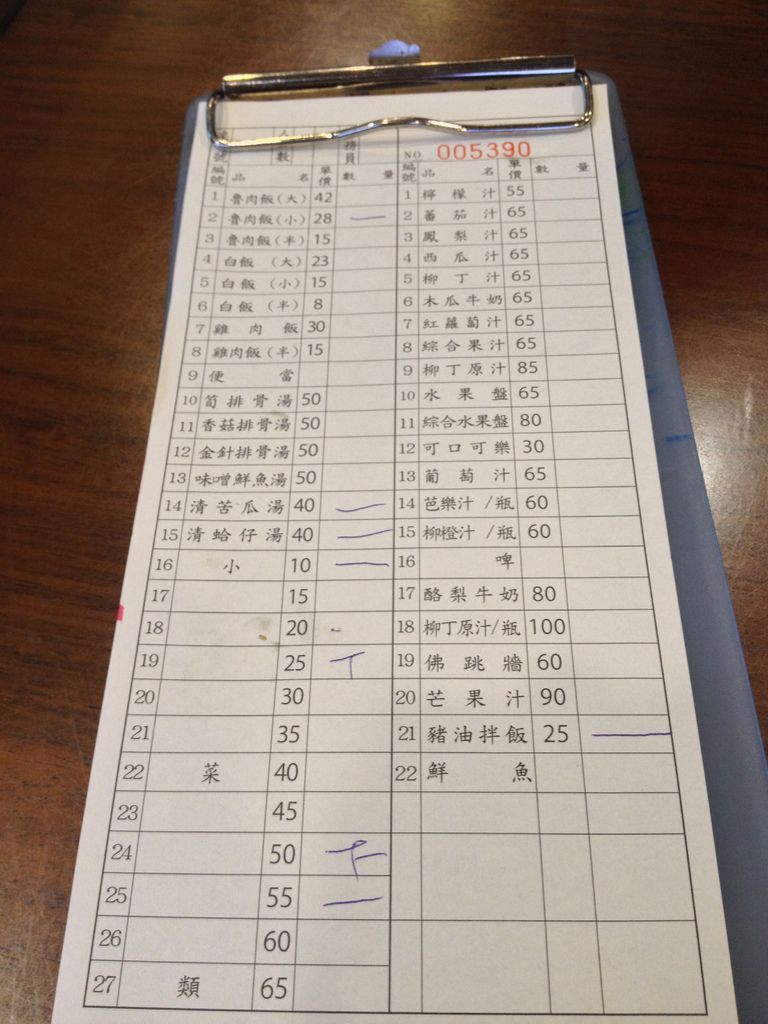 號 人數 務員 NO 005390
編號 品名 單價 數量 編號 品名 單價 數量
1 魯肉飯(大) 42 1 檸檬汁 55
2 魯肉飯(小) 28 一 2 蕃茄汁 65
3 魯肉飯(半) 15 3 鳳梨汁 65
4 白飯(大) 23 4 西瓜汁 65
5 白飯(小) 15 5 柳丁汁 65
6 白飯(半) 8 6 木瓜牛奶 65
7 雞肉飯 30 7 紅蘿蔔汁 65
8 雞肉飯(半) 15 8 綜合果汁 65
9 便當 9 柳丁原汁 85
10 筍排骨湯 50 10 水果盤 65
11 香菇排骨湯 50 11 綜合水果盤 80
12 金針排骨湯 50 12 可口可樂 30
13 味噌鮮魚湯 50 13 葡萄汁 65
14 清苦瓜湯 40 一 14 芭樂汁/瓶 60
15 清蛤仔湯 40 一 15 柳橙汁/瓶 60
16 小 10 一 16 啤
17 15 17 酪梨牛奶 80
18 20 18 柳丁原汁/瓶 100
19 25 19 佛跳牆 60
20 30 20 芒果汁 90
21 35 21 豬油拌飯 25 一
22 菜 40 22 鮮魚
23 45
24 50
25 55 一
26 60
27 類 65